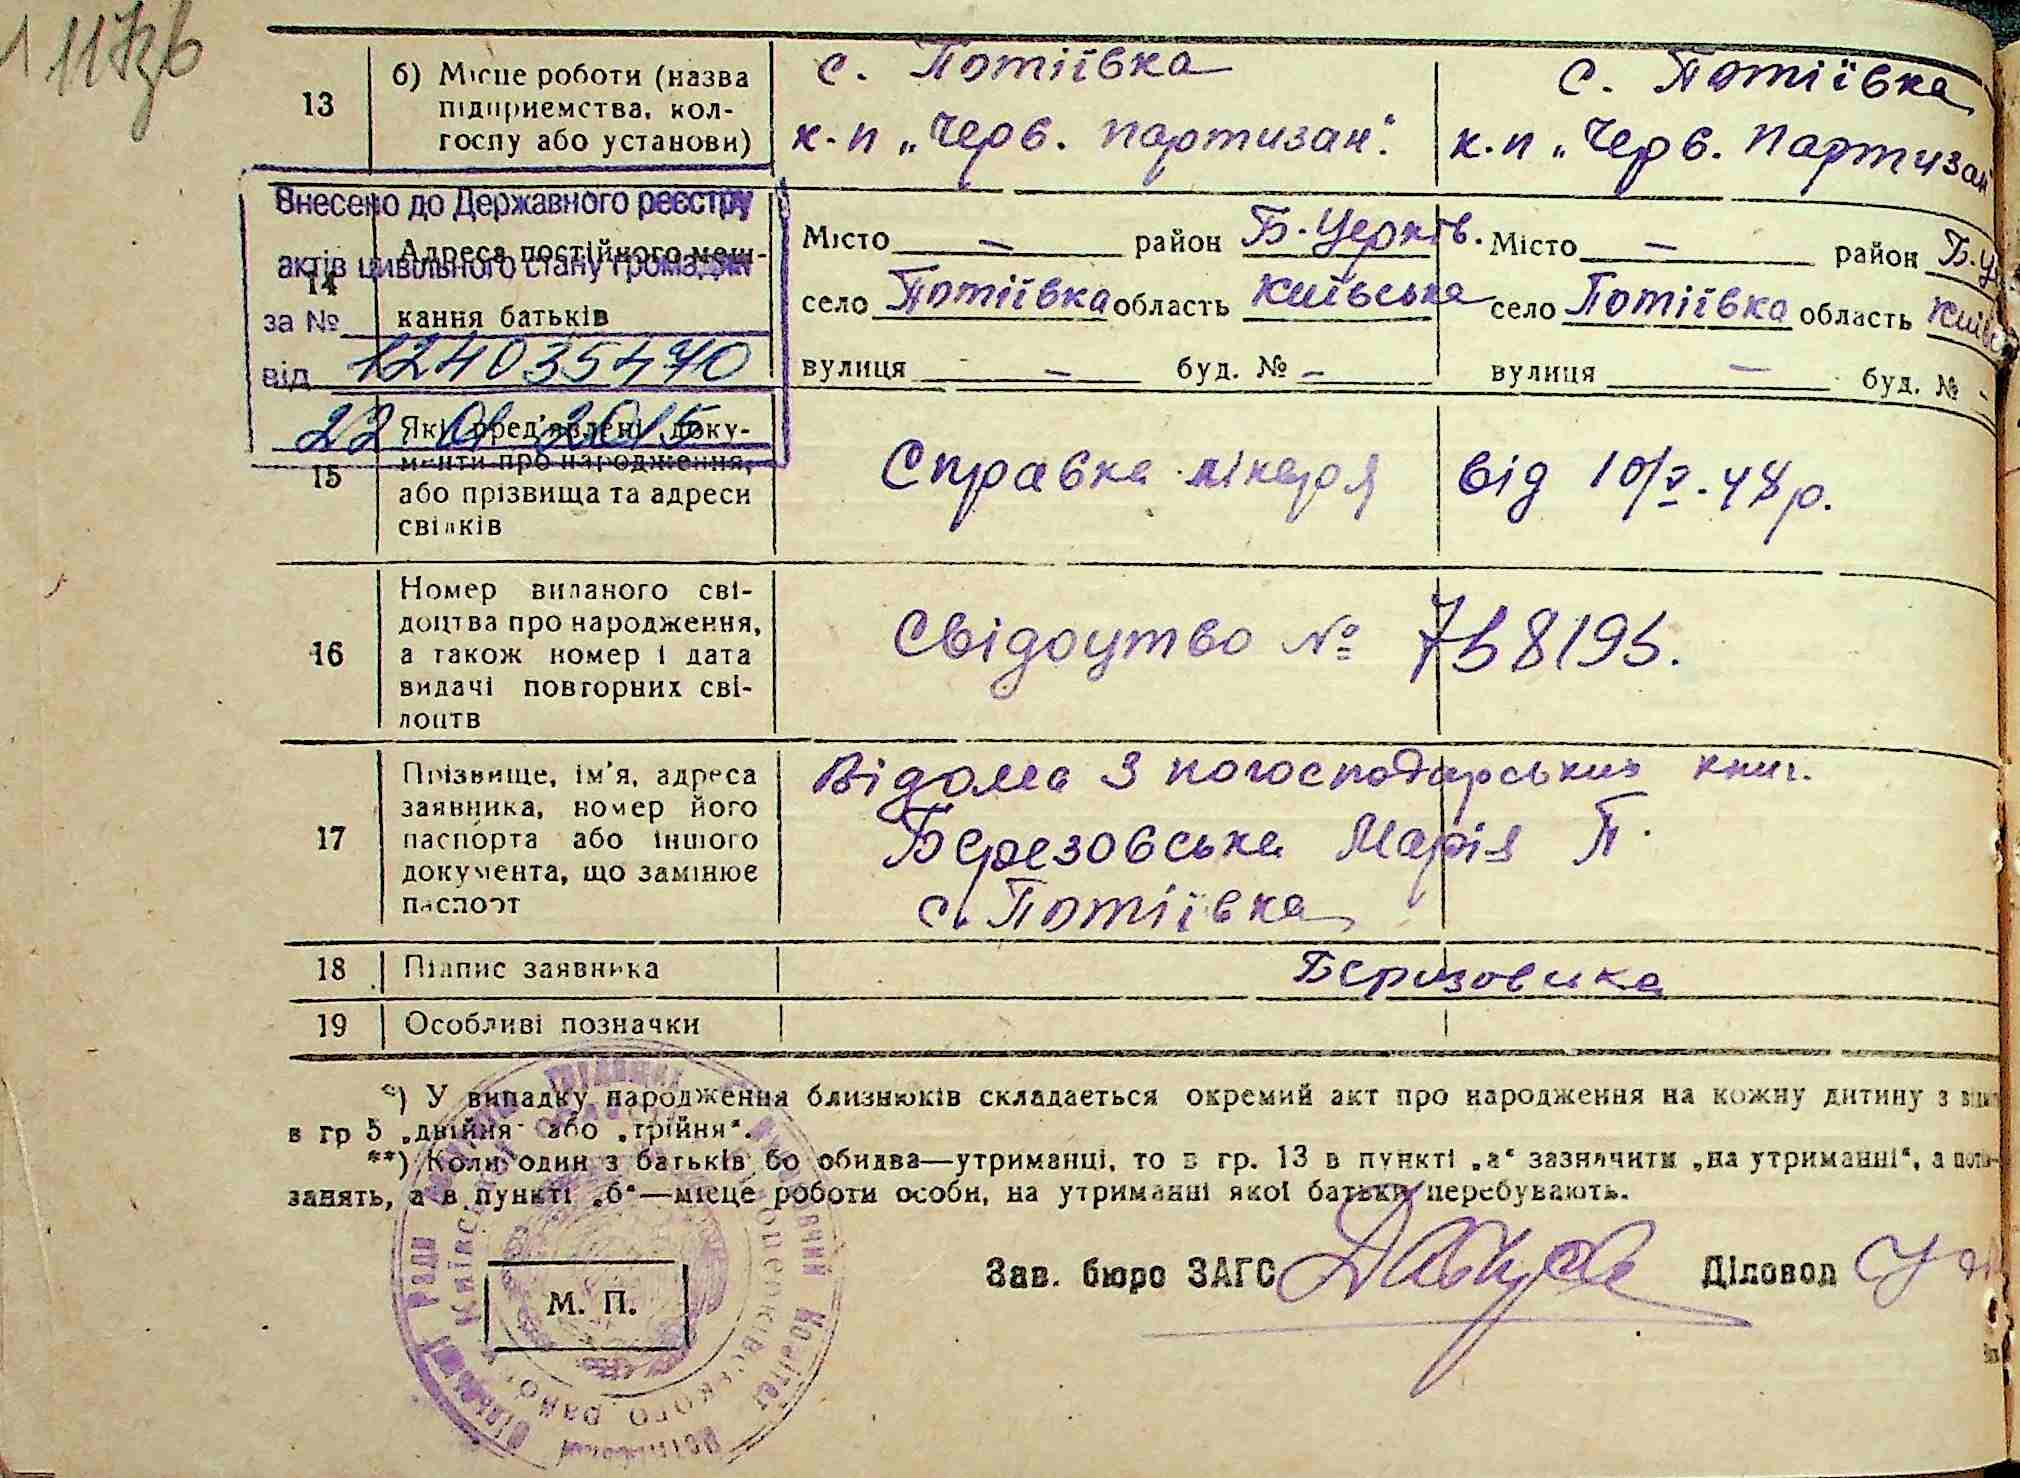 13
б) Місце роботи (назва
підприємства, кол-
госпу або установи)
с. Потіївка
к-п „Черв. партизан".
с. Потіївка
к.п „Черв. Партизан
Внесено до Державного реєстру
актів цивільного стану громадян
за №
від 124035470
22 01 2015
14
Адреса постійного меш-
кання батьків
Місто — район Б-Церків.
село Потіївка область Київська
вулиця — буд. № –
Місто — район
село Потіївка область
вулиця — буд. № –
15
Які пред'явлені доку-
менти про народження,
або прізвища та адреси
свідків
Справка лікаря від 10/V.-48р.
16
Номер виданого сві-
доцтва про народження,
а також номер і дата
видачі повторних сві-
доцтв
Свідоцтво №
17
Прізвище, ім'я, адреса
заявника, номер його
паспорта або іншого
документа, що замінює
паспорт
Відома з погосподарських книг.
Березовська Марія П.
с. Потіївка
18
Підпис заявника
19
Особливі позначки
*) У випадку народження близнюків складається окремий акт про народження на кожну дитину з
в гр 5 „двійня" або „трійня".
**) Коли один з батьків бо обидва—утриманці, то в гр. 13 в пункті „а" зазначити „на утриманні", а
занять, а в пункті „б"—місце роботи особи, на утриманні якої батьки перебувають.
Зав. бюро ЗАГС
Діловод
М. П.